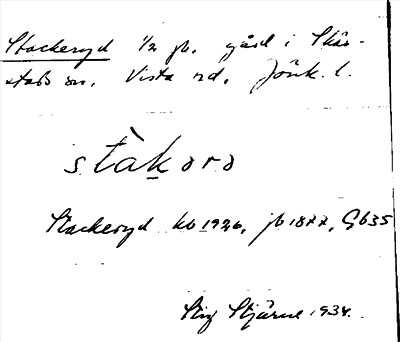 Stackeryd 1/2 jb. gård i Skär-
stads sn. Vista hd. Jönk. l.
stàk̲ərə
Stackeryd kb 1926, jb 1877, Gb35
Stig Stjärne 1934.